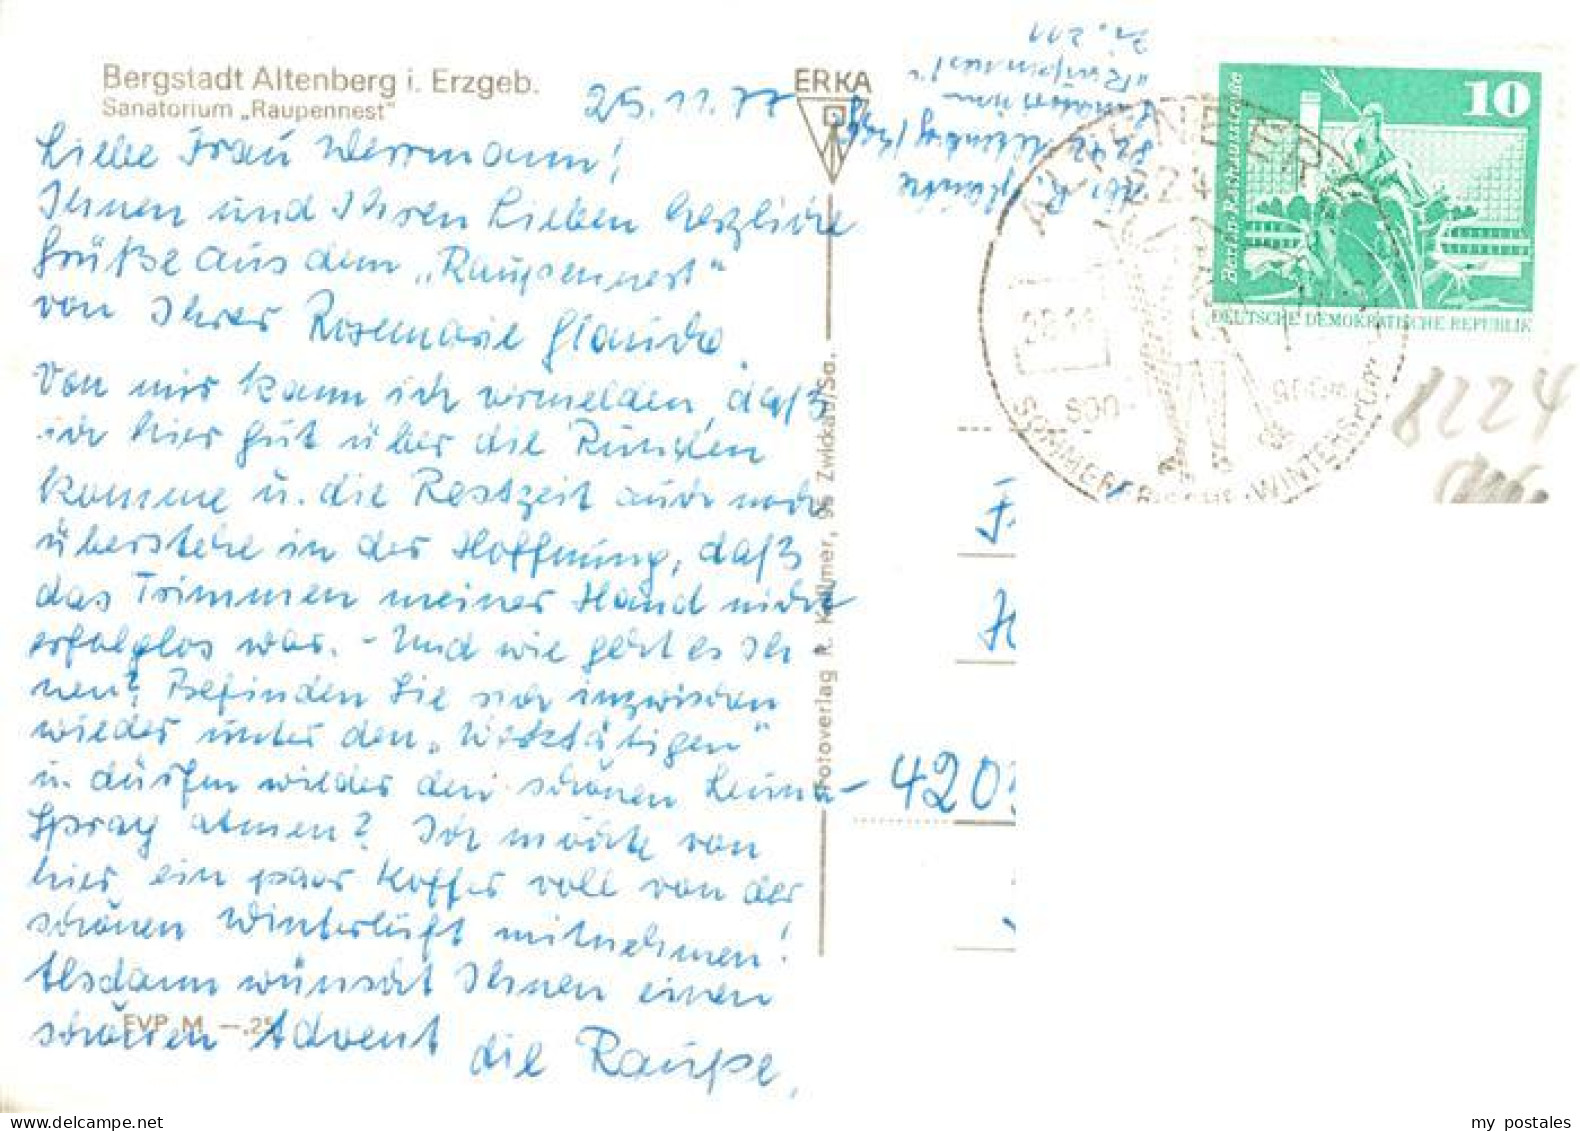 Bergstadt Altenberg i. Erzgeb.
Sanatorium „Raupennest“
25.11.77
Liebe Frau Werrmann!
Ihnen und Ihren Lieben herzliche
Grüße aus dem „Raupennest“
von Ihrer Rosemarie
Von mir kann ich vermelden, daß
ich hier gut über die Runden
komme u. die Restzeit auch noch
überstehe in der Hoffnung, daß
das Trimmen meiner Hand nicht
erfolglos war. - Und wie geht es Ih
nen? Befinden Sie sich inzwischen
wieder unter den „Werktätigen“
u. dürfen wieder den schönen Leuna-
Spray atmen? Ich möchte von
hier ein paar Koffer voll von der
schönen Winterluft mitnehmen!
Alsdann wünscht Ihnen einen
schönen Advent die Raupe.
EVP M —.25
ERKA
Fotoverlag R. Kallmer, 95 Zwickau/Sa.
8242 Altenberg
Sanatorium
„Raupennest“
Zi. 211
ALTENBERG
824
28.11
SOMMERFRISCHE · WINTERSPORT
10
Berlin, Rathausstraße
DEUTSCHE DEMOKRATISCHE REPUBLIK
8224
F
H
420
my postales